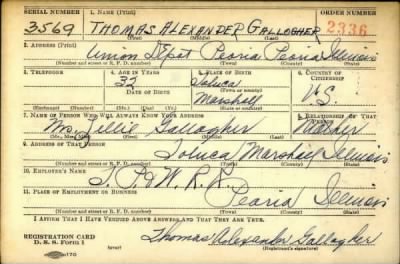 SERIAL NUMBER 1. NAME (Print) ORDER NUMBER
3569 THOMAS ALEXANDER GALLOGHER 2336
(First) (Middle) (Last)
2. ADDRESS (Print)
Union Depot Peoria Peoria Illinois
(Number and street or R. F. D. number) (Town) (County) (State)
3. TELEPHONE 4. AGE IN YEARS 5. PLACE OF BIRTH 6. COUNTRY OF CITIZENSHIP
32 Toluca
DATE OF BIRTH Marshall U.S.
(Exchange) (Number) (Mo.) (Day) (Yr.) (State or country)
7. NAME OF PERSON WHO WILL ALWAYS KNOW YOUR ADDRESS 8. RELATIONSHIP OF THAT PERSON
Mrs. Lillie Gallagher Mother
(Mr., Mrs., Miss) (First) (Middle) (Last)
9. ADDRESS OF THAT PERSON
Toluca Marshall Illinois
(Number and street or R. F. D. number) (Town) (County) (State)
10. EMPLOYER'S NAME
T. P. & W. R. R.
11. PLACE OF EMPLOYMENT OR BUSINESS
Peoria Illinois
(Number and street or R. F. D. number) (Town) (County) (State)
I AFFIRM THAT I HAVE VERIFIED ABOVE ANSWERS AND THAT THEY ARE TRUE.
REGISTRATION CARD
D. S. S. Form 1 Thomas Alexander Gallogher
(over) (Registrant's signature)